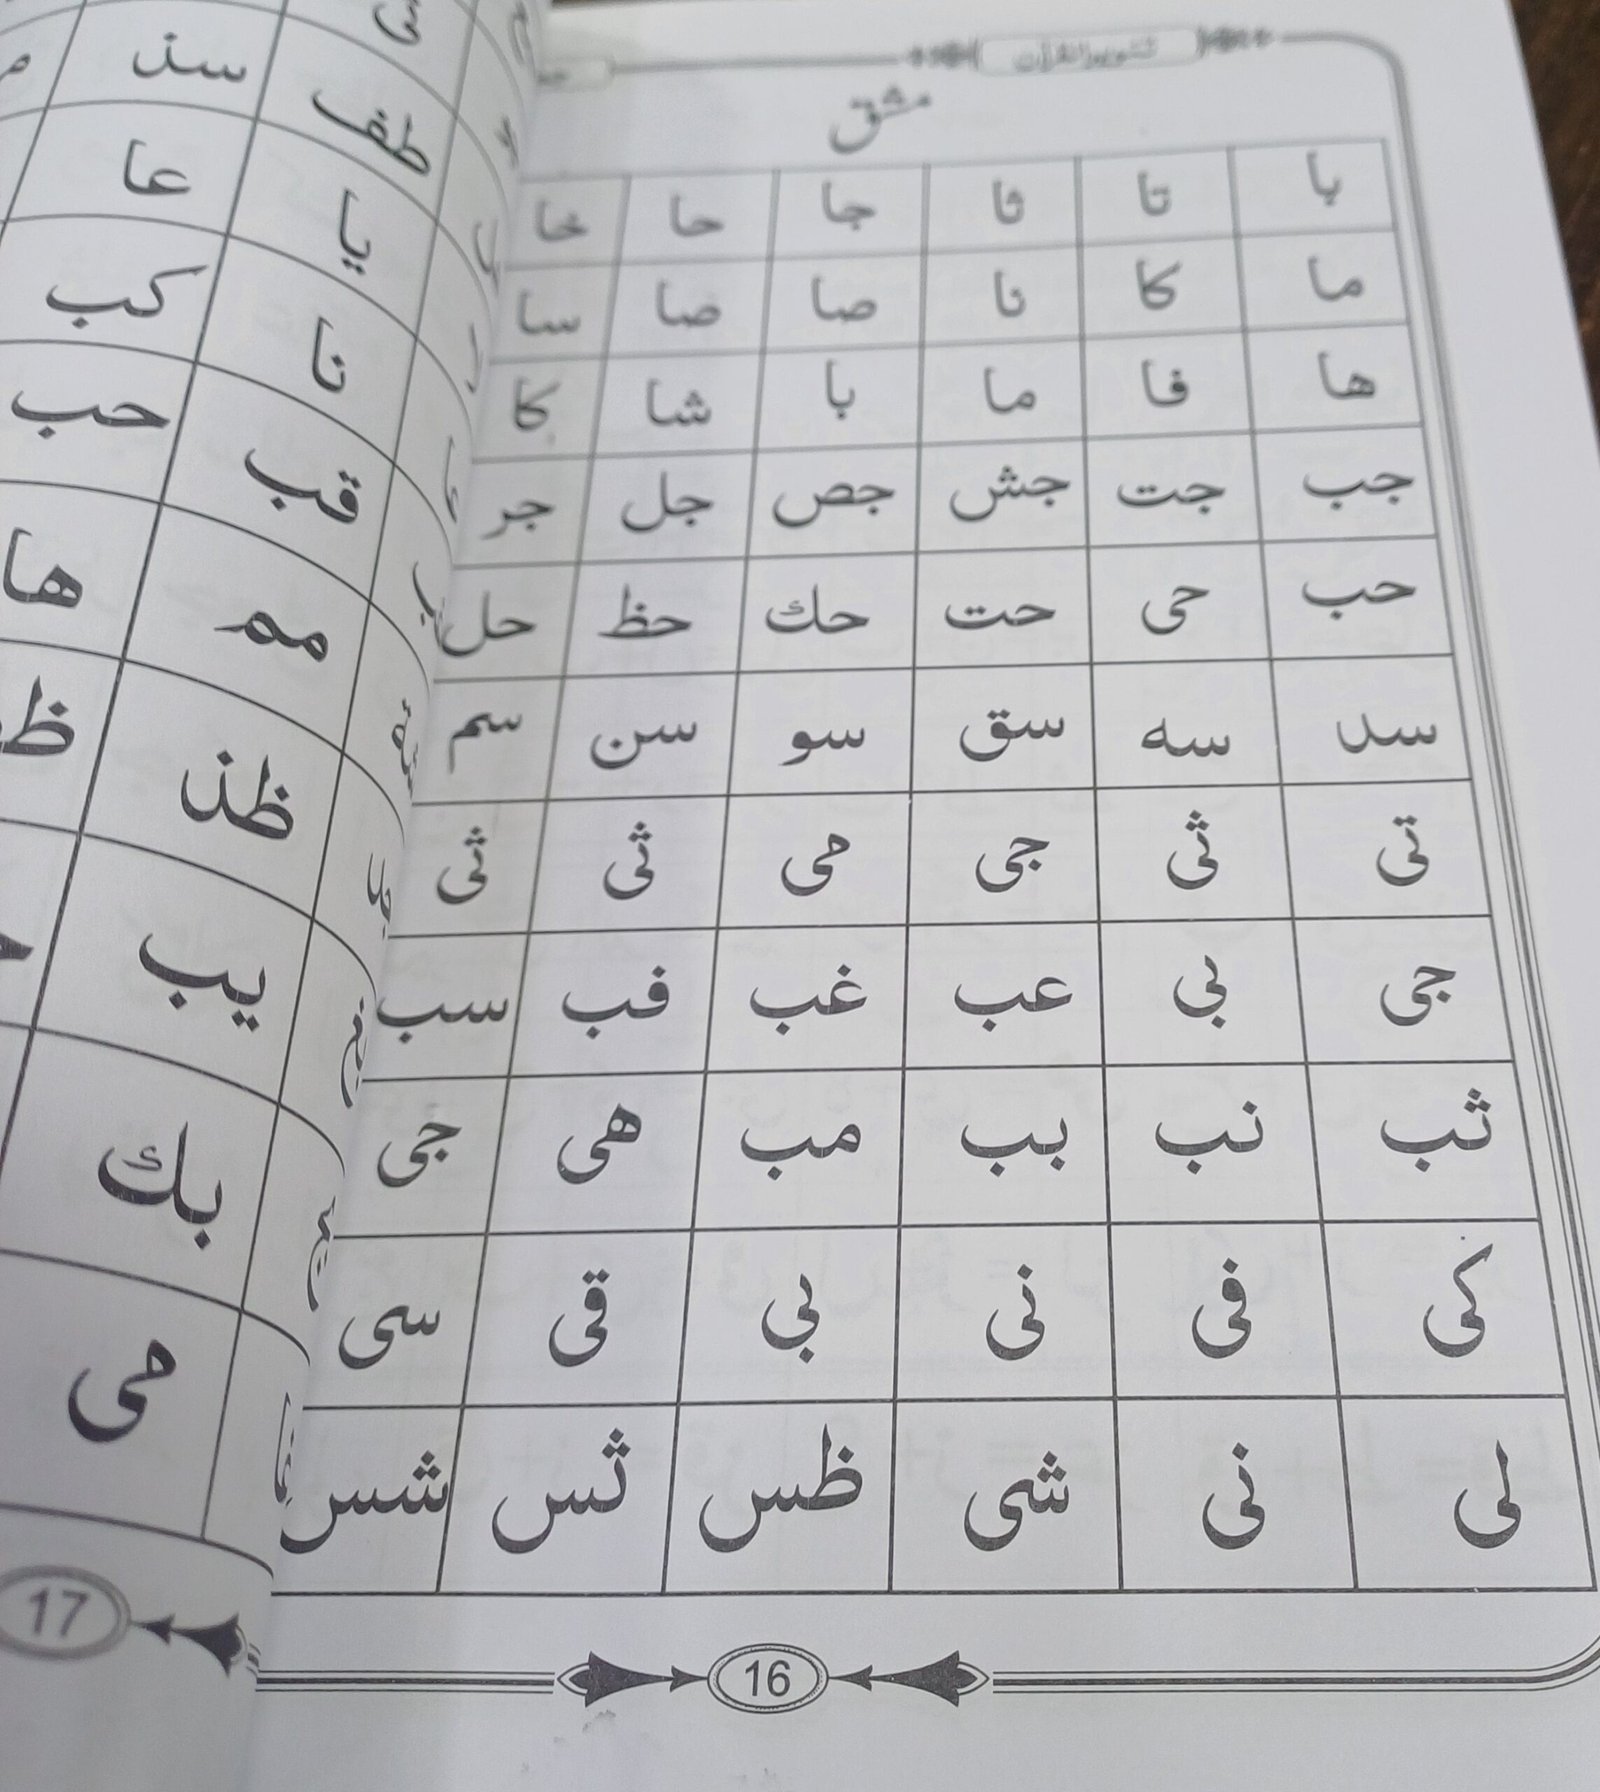 تنویر القرآن
مشق
با تا ثا جا حا خا
ما كا نا صا ضا سا
ها فا ما با شا كا
جب جت جش جص جل جر
حب حی حت حك حظ حل
سد سه سق سو سن سم
تی ثی جی می ثی ثی
جی بی عب غب فب سب
ثب نب بب مب هی جی
کی فی نی بی قی سی
لی نی شی ظس ثس شس
16
سذ
طف
عا
یا
کب
نا
حب
قب
ها
مم
ظذ
یب
بك
می
17